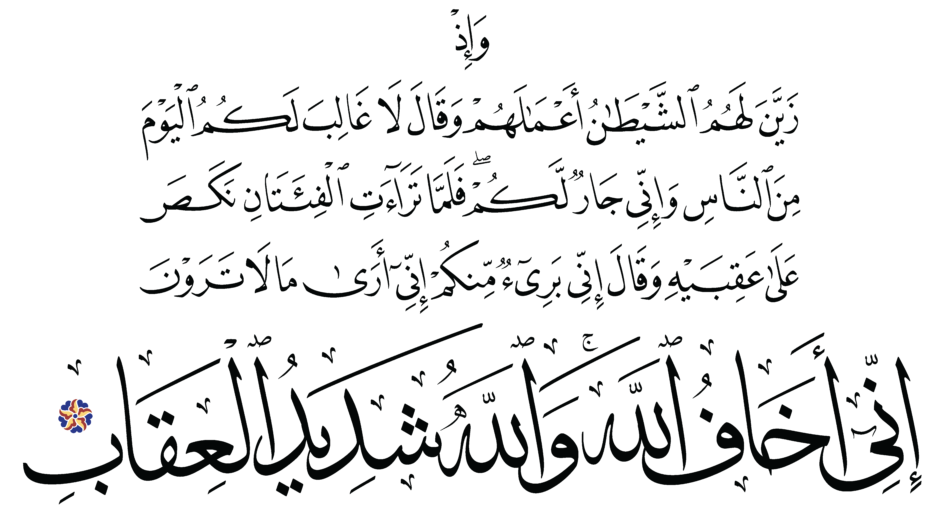 وَإِذْ
زَيَّنَ لَهُمُ ٱلشَّيْطَٰنُ أَعْمَٰلَهُمْ وَقَالَ لَا غَالِبَ لَكُمُ ٱلْيَوْمَ
مِنَ ٱلنَّاسِ وَإِنِّى جَارٌ لَّكُمْ ۖ فَلَمَّا تَرَآءَتِ ٱلْفِئَتَانِ نَكَصَ
عَلَىٰ عَقِبَيْهِ وَقَالَ إِنِّى بَرِىٓءٌ مِّنكُمْ إِنِّىٓ أَرَىٰ مَا لَا تَرَوْنَ
إِنِّىٓ أَخَافُ ٱللَّهَ ۚ وَٱللَّهُ شَدِيدُ ٱلْعِقَابِ